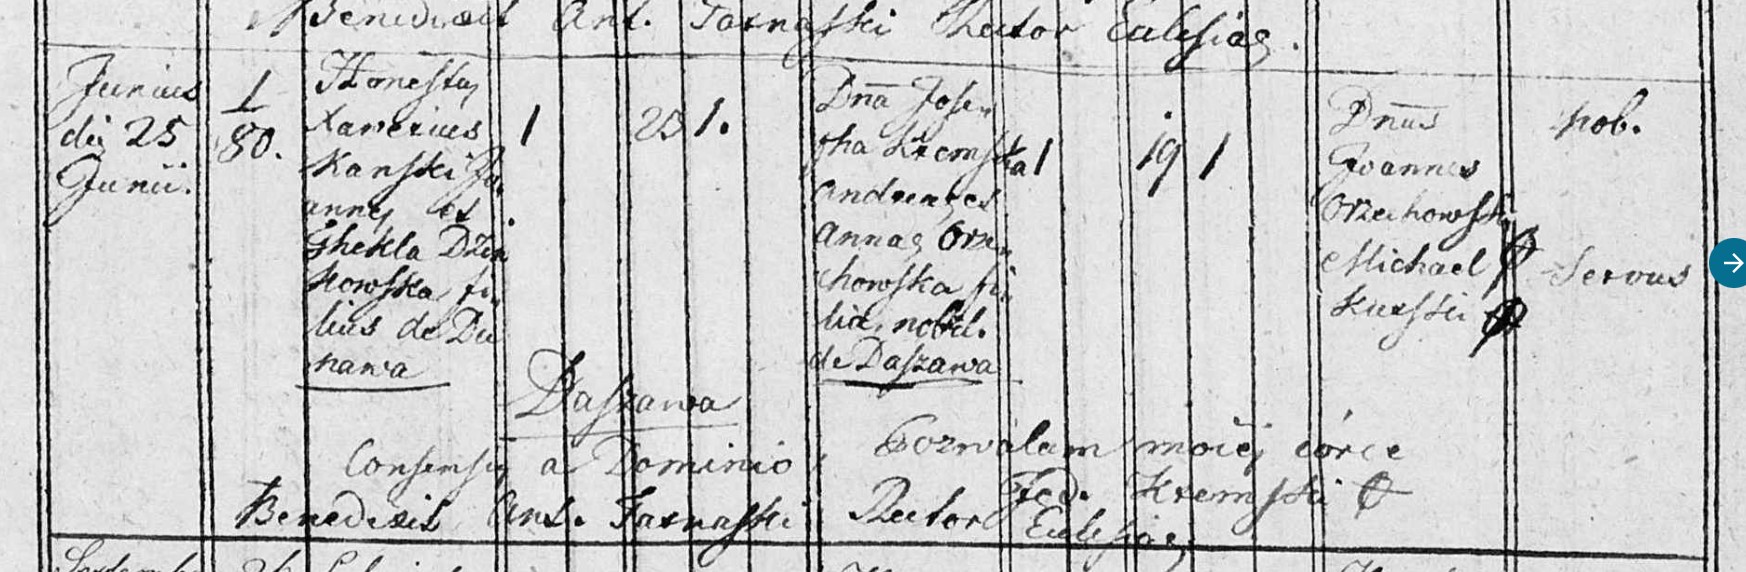 Benedixit Ant. Tarnaſki Rector Ecclesiae.
Junius
die 25
Junii.
1
80.
Honestus
Xawerius
Kanſki Jo
annes et
Thekla Dzin
kowſka fi
lius de Du
nawa
1
23 1.
Dna Jose
pha Kremſka
Andreas et
Annae Orze
chowſka fi
lia, nobil.
de Daſzawa
1
19 1
Dnus
Joannes
Orzechowſki
Michael
Kurſki
nob.
Servus
Daſzawa
Consensus a Dominio, Pozwalam moiéj córce
Fed. Kremſki
Benedixit Ant. Tarnaſki Rector Ecclesiae